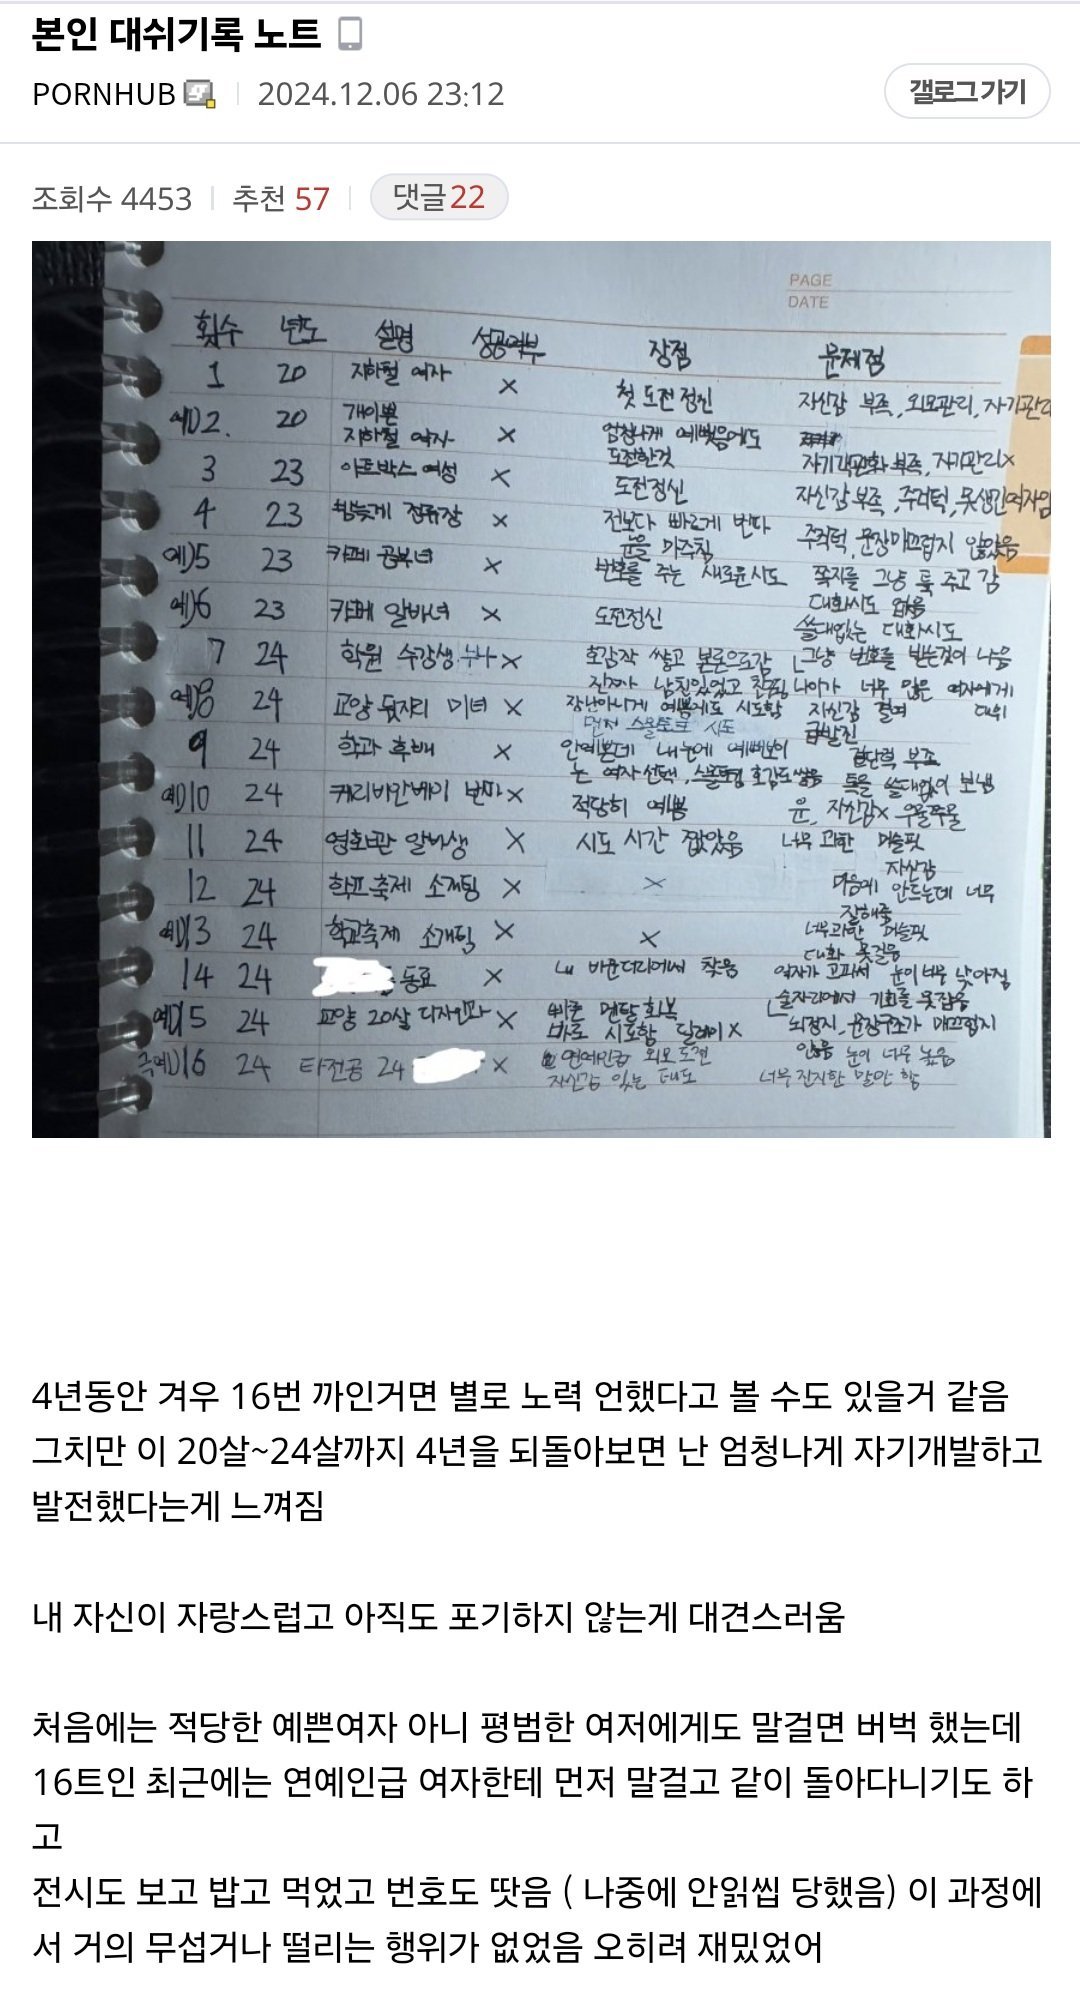 본인 대쉬기록 노트
PORNHUB 2024.12.06 23:12 갤로그 가기
조회수 4453 추천 57 댓글 22
PAGE
DATE
횟수 년도 설명 성공여부 장점 문제점
1 20 지하철 여자 × 첫 도전정신 자신감 부족, 외모관리, 자기관리
예)2. 20 개이쁜 지하철 여자 × 엄청나게 예뻤음에도 도전한것 자기객관화 부족, 자기관리×
3 23 아트박스 여성 × 도전정신 자신감부족, 주저턱, 못생긴여자임
4 23 정류장 × 전보다 빠르게 번따 눈을 마주침 주저턱, 문장매끄럽지 않았음
예)5 23 카페 공부녀 × 번호를 주는 새로운시도 쪽지를 그냥 툭 주고 감 대화시도 없음
예)6 23 카페 알바녀 × 도전정신 쓸데없는 대화시도
7 24 학원 수강생 누나 × 호감작 쌓고 본론으로감 그냥 번호를 받는것이 나음
예)8 24 교양 옆자리 미녀 × 장난아니게 예쁨에도 시도함 먼저 스몰토크 시도 나이가 너무 많은 여자에게 대쉬 자신감 결여 급발진
9 24 학과 후배 × 안예쁜데 내눈에 예뻐보이는 여자선택, 스몰토킹 호감도쌓음 결단력 부족 톡을 쓸데없이 보냄
예)10 24 캐리비안베이 번따 × 적당히 예쁨 운, 자신감× 우물쭈물
11 24 영화관 알바생 × 시도 시간 짧았음 너무 과한 머슬핏 자신감
12 24 학교축제 소개팅 × × 마음에 안드는데 너무 잘해줌
예)13 24 학교축제 소개팅 × × 너무과한 머슬핏 대화 못걸음
14 24 동료 × 내 바운더리에서 찾음 여자가 고파서 눈이 너무 낮아짐 술자리에서 기회를 못잡음
예)15 24 교양 20살 디자인과 × 빠른 멘탈 회복 바로 시도함 딜레이× 뇌정지, 문장구조가 매끄럽지 않음
극예)16 24 타전공 24 × 연예인급 외모 도전 자신감 있는 태도 눈이 너무 높음 너무 진지한 말만 함
4년동안 겨우 16번 까인거면 별로 노력 언했다고 볼 수도 있을거 같음
그치만 이 20살~24살까지 4년을 되돌아보면 난 엄청나게 자기개발하고
발전했다는게 느껴짐
내 자신이 자랑스럽고 아직도 포기하지 않는게 대견스러움
처음에는 적당한 예쁜여자 아니 평범한 여저에게도 말걸면 버벅 했는데
16트인 최근에는 연예인급 여자한테 먼저 말걸고 같이 돌아다니기도 하
고
전시도 보고 밥고 먹었고 번호도 땃음 ( 나중에 안읽씹 당했음) 이 과정에
서 거의 무섭거나 떨리는 행위가 없었음 오히려 재밌었어